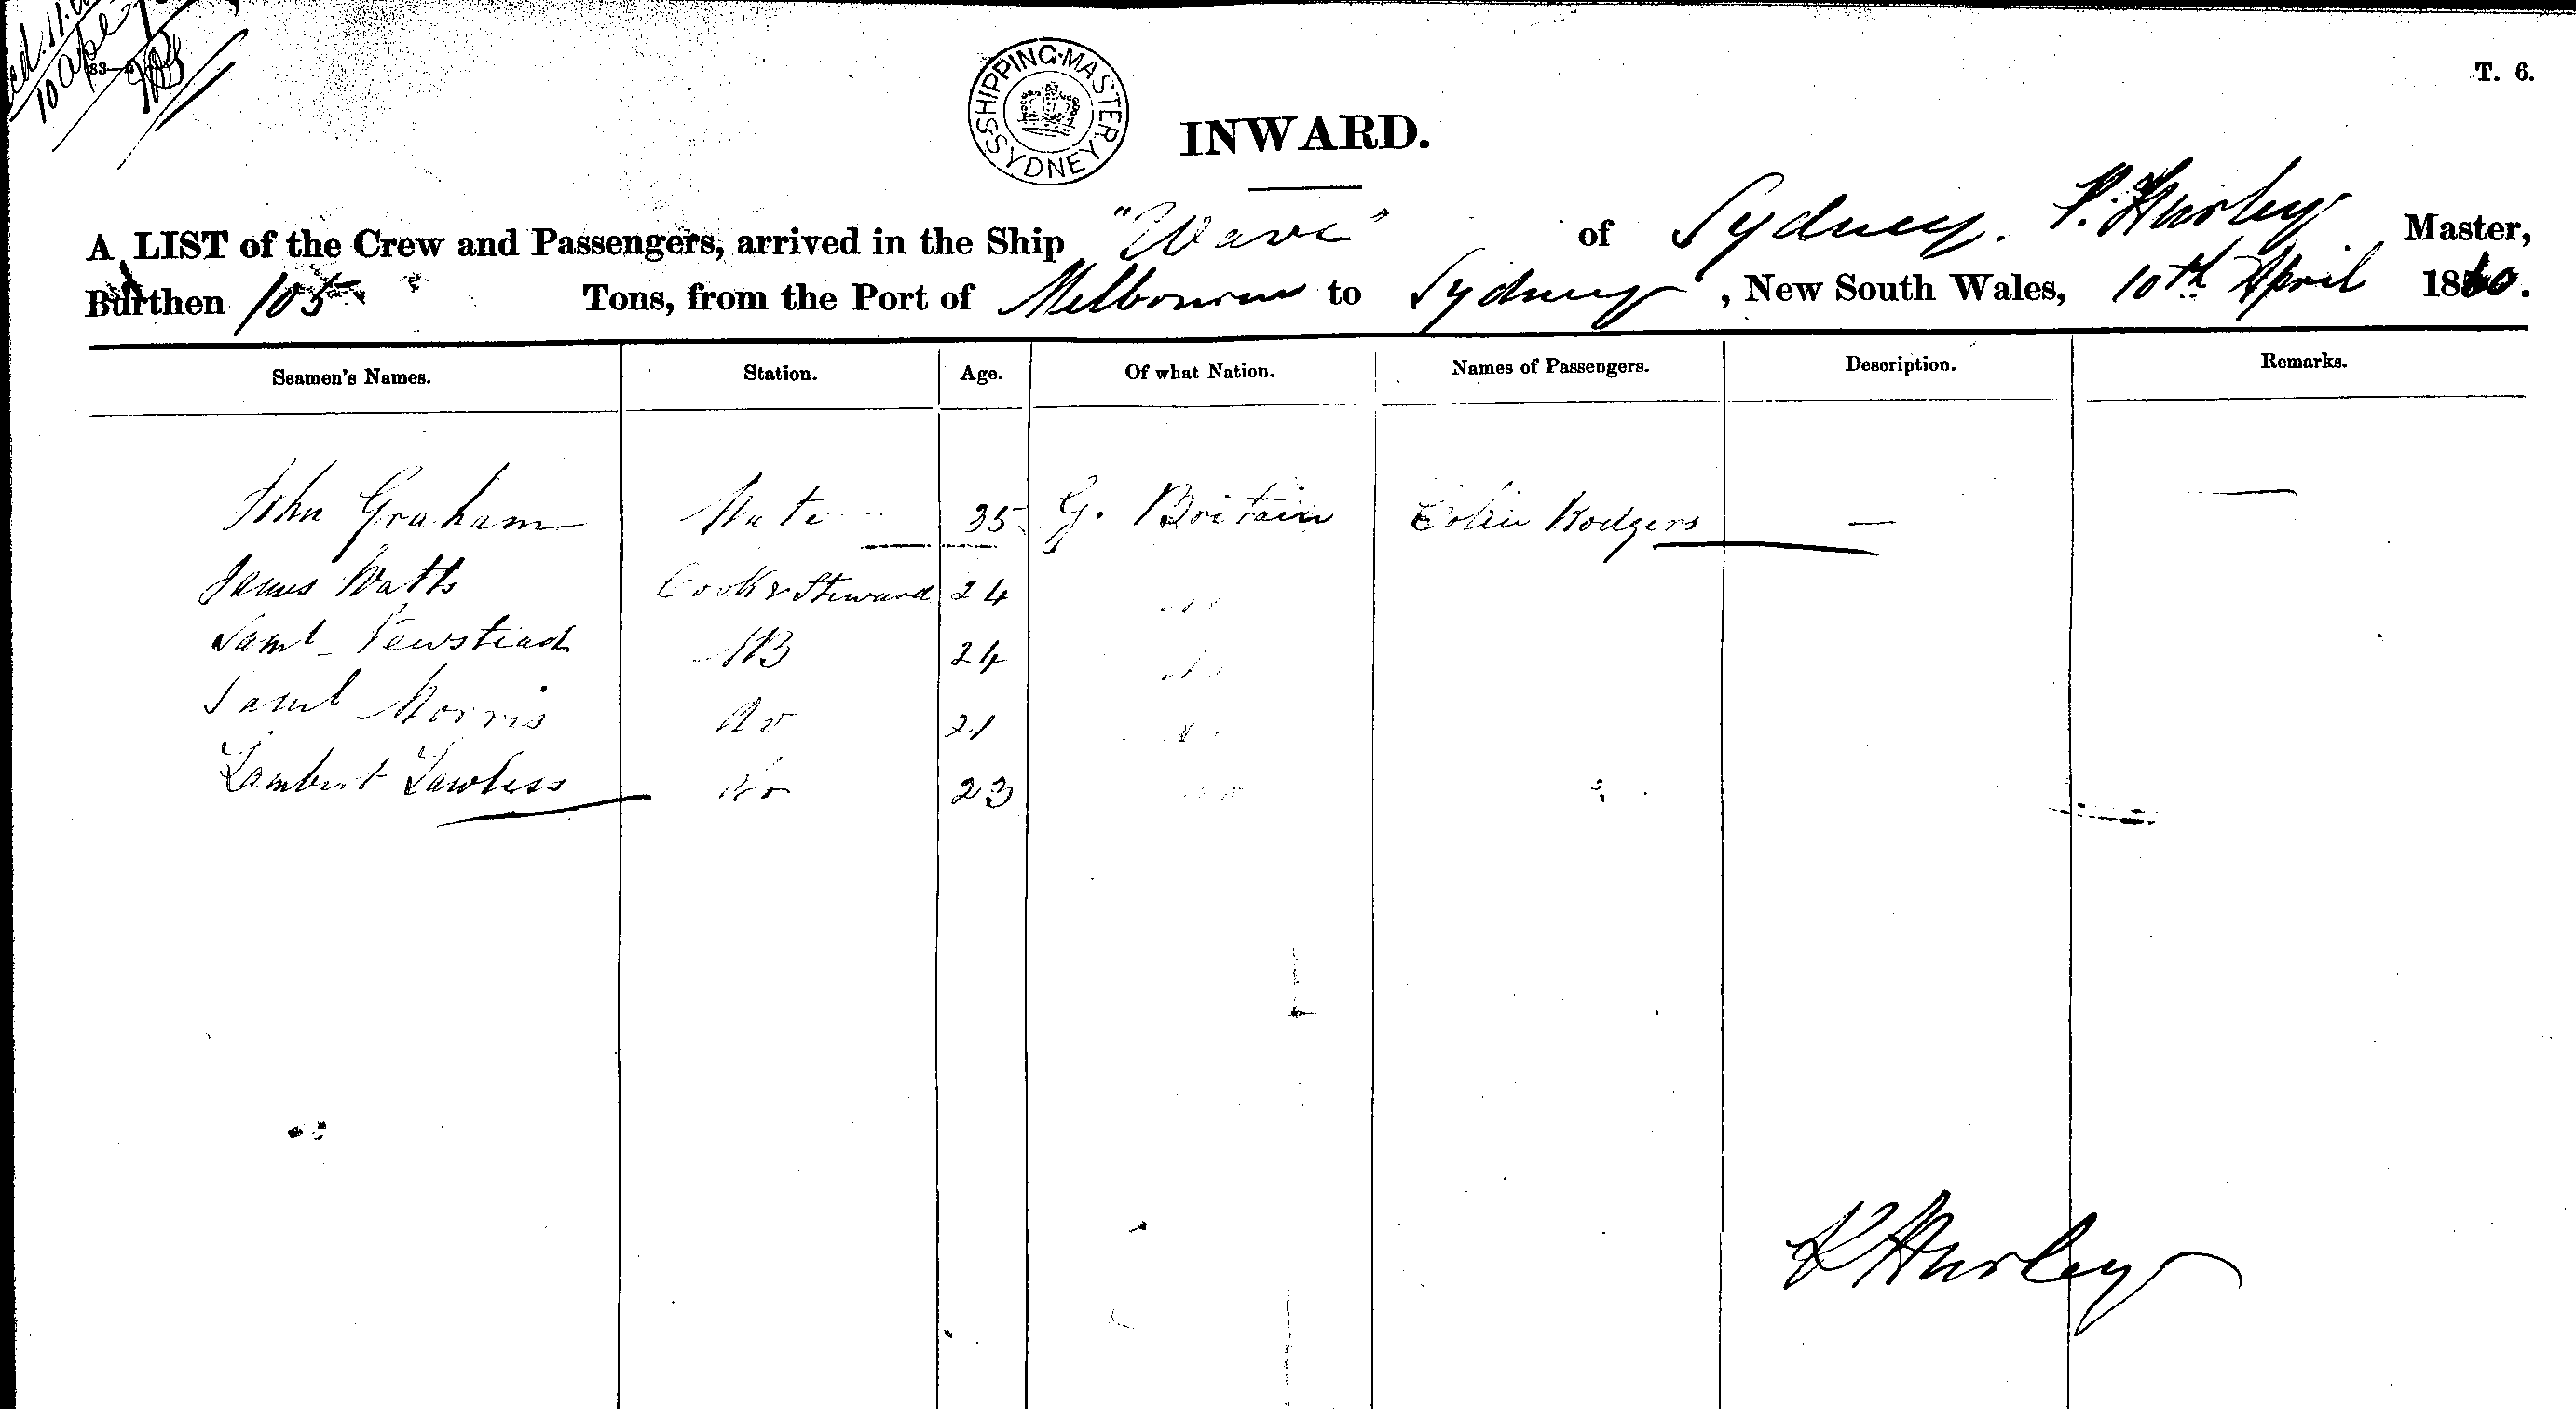 10 Apl
SHIPPING MASTER SYDNEY
T. 6.
INWARD.
A LIST of the Crew and Passengers, arrived in the Ship "Wave" of Sydney. P. Hurley Master,
Burthen 105 Tons, from the Port of Melbourne to Sydney, New South Wales, 10th April 1860.
Seamen's Names. Station. Age. Of what Nation. Names of Passengers. Description. Remarks.
John Graham Mate 35 G. Britain Colin Rodgers —
James Watts Cook & Steward 24 " "
Saml Newstead AB 24 " "
Saml Morris Do 21 " "
Lambert Lawless Do 23 " "
P Hurley